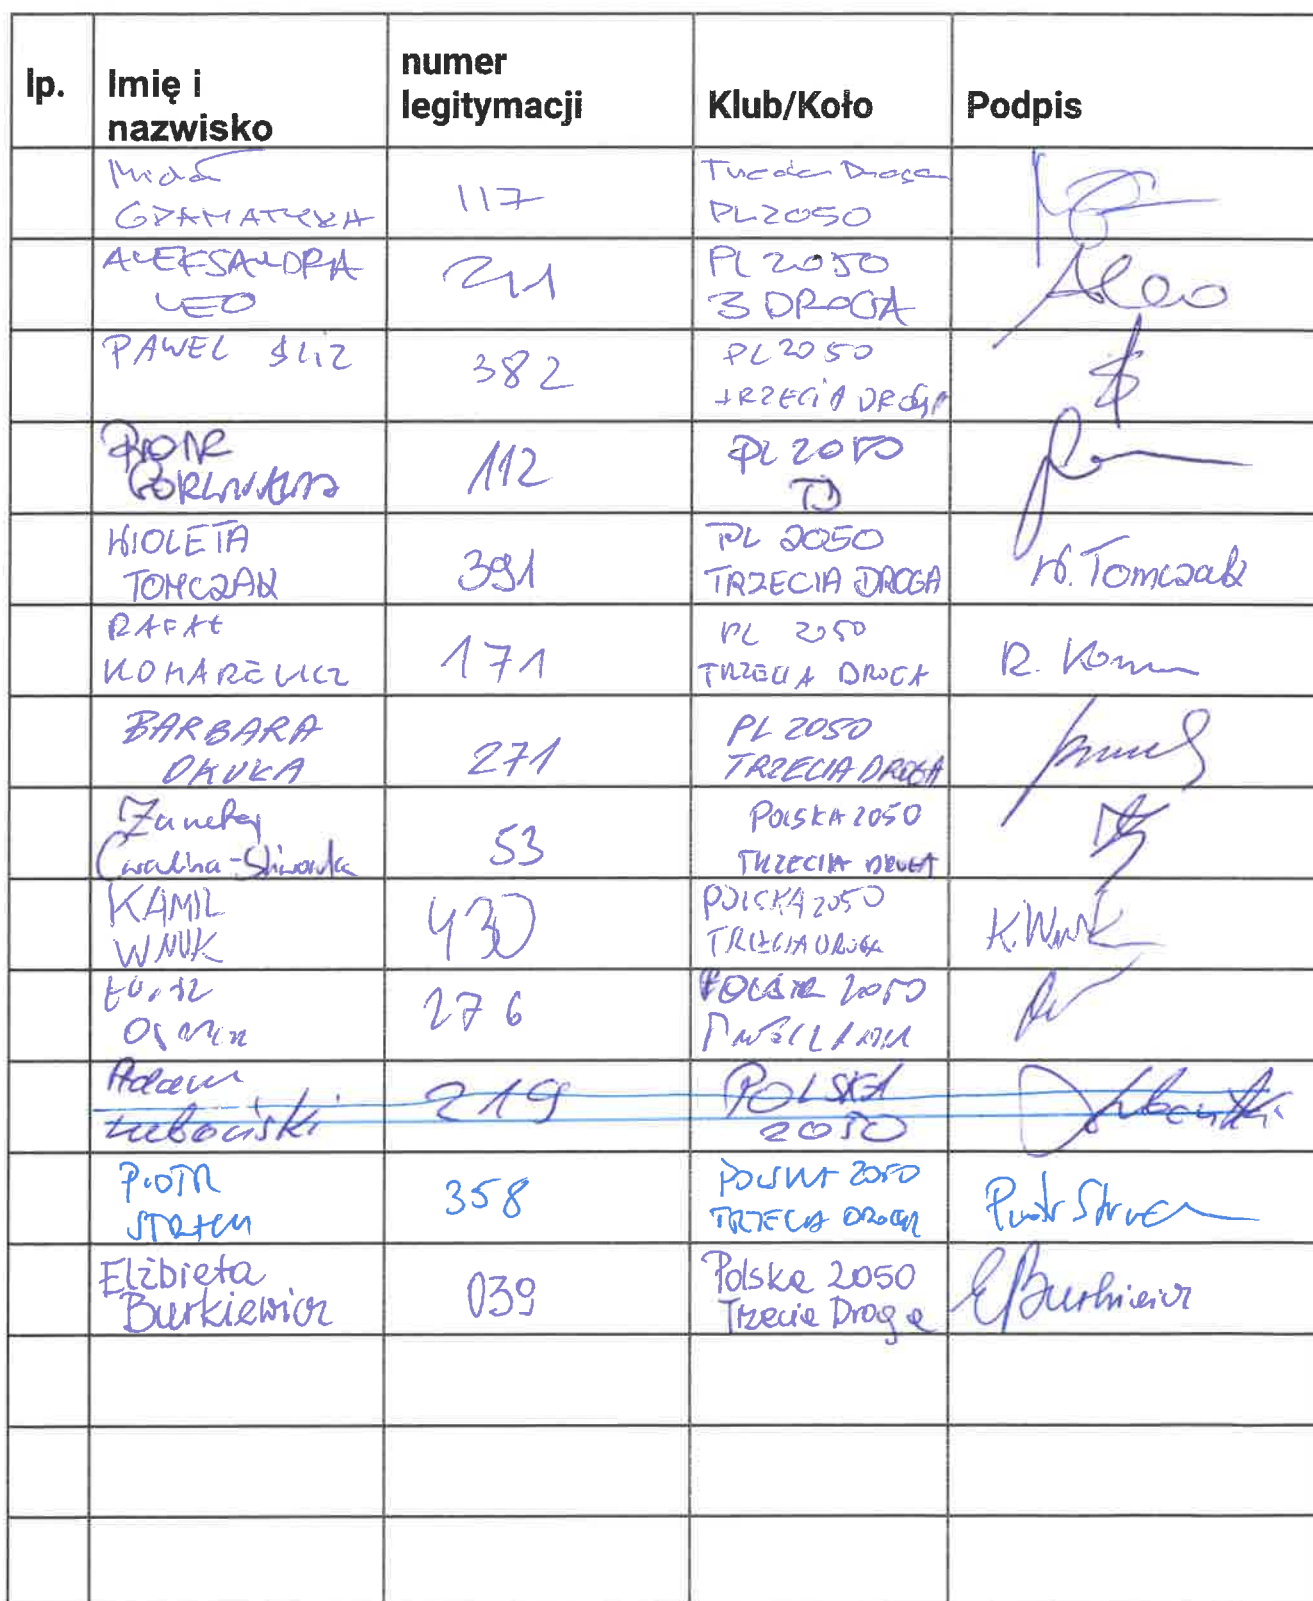 lp.
Imię i
nazwisko
numer
legitymacji
Klub/Koło
Podpis
Michał
GRAMATYKA
117
Trzecia Droga
PL2050
ALEKSANDRA
LEO
211
PL 2050
3 DROGA
ALeo
PAWEŁ ŚLIZ
382
PL 2050
TRZECIA DROGA
112
PL 2050
TD
WIOLETA
TOMCZAK
391
PL 2050
TRZECIA DROGA
W. Tomczak
RAFAŁ
KOMAREWICZ
171
PL 2050
TRZECIA DROGA
R. Kom
BARBARA
OKUŁA
271
PL 2050
TRZECIA DROGA
Żaneta
Cwalina-Śliwowska
53
POLSKA 2050
TRZECIA DROGA
KAMIL
WNUK
430
POLSKA 2050
TRZECIA DROGA
K.Wnuk
276
POLSKA 2050
Adam
Luboński
219
POLSKA
2050
PIOTR
STRACH
358
POLSKA 2050
TRZECIA DROGA
Piotr Strach
Elżbieta
Burkiewicz
039
Polska 2050
Trzecia Droga
EBurkiewicz